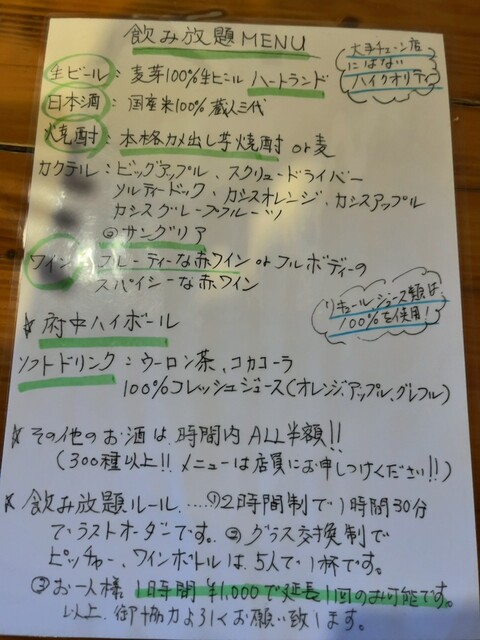 飲み放題MENU
大手チェーン店
にはない
ハイクオリティ
生ビール：麦芽100%生ビール ハートランド
日本酒：国産米100% 蔵人三代
焼酎：本格カメ出し芋焼酎 or 麦
カクテル：ビッグアップル、スクリュードライバー
ソルティードック、カシスオレンジ、カシスアップル
カシスグレープフルーツ
◎サングリア
ワイン：フルーティーな赤ワイン or フルボディーの
スパイシーな赤ワイン
リキュール、ジュース類は、
100%を使用！
☆府中ハイボール
ソフトドリンク：ウーロン茶、コカコーラ
100%フレッシュジュース(オレンジ、アップル、グレフル)
☆その他のお酒は、時間内ALL半額!!
(300種以上!! メニューは店員にお申しつけください!!)
☆飲み放題ルール……①2時間制で1時間30分
でラストオーダーです。②グラス交換制で
ピッチャー、ワインボトルは、5人で1杯です。
③お一人様 1時間¥1,000で延長1回のみ可能です。
以上、御協力よろしくお願い致します。